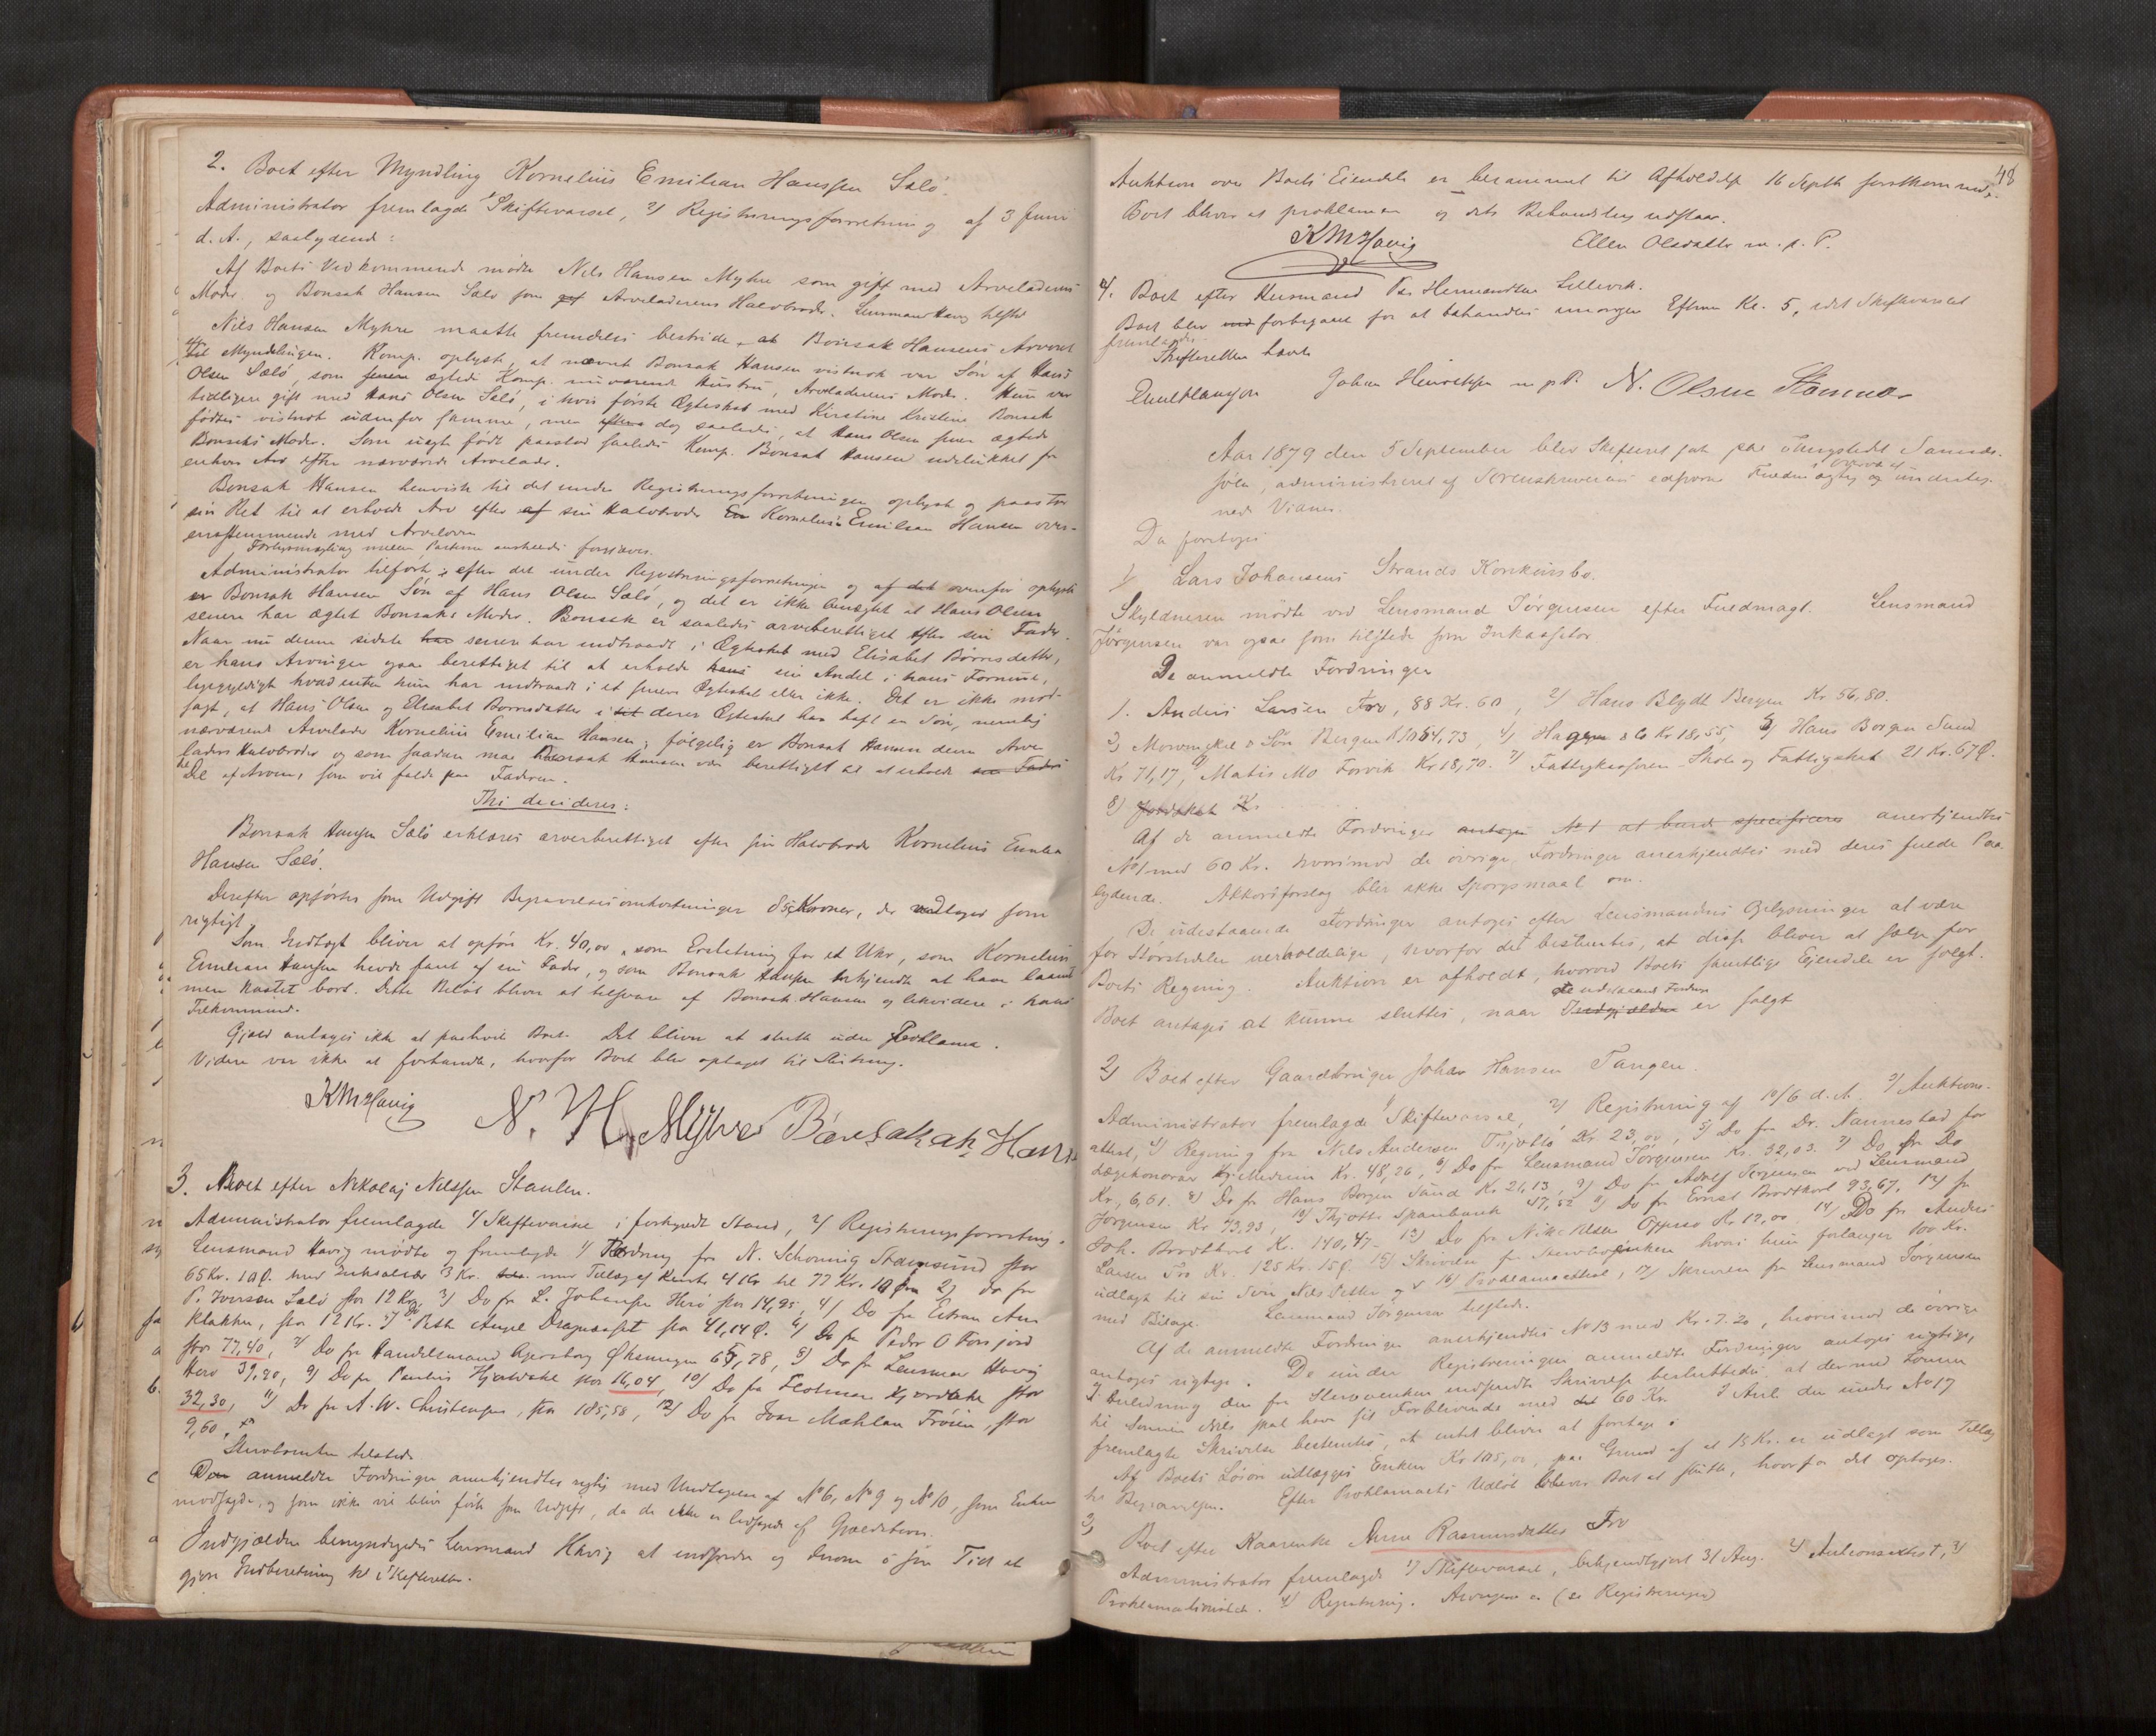 2. Boet efter Myndling Kornelius Emilian Hanssen Sælø.
Administrator fremlagde 1/ Skiftevarsel, 2/ Registreringsforretning af 3 Juni
d. A., saalydende:
Af Boets Vedkommende mødte Nils Hansen Myhre som gift med Arveladerens
Moder og Bonsak Hansen Sælø som Arveladerens Halvbroder. Lensmand Havig tilstede
Nils Hansen Myhre maatte fremdeles bestride, at Bonsak Hansens Arveret
til Myndlingen. Komp. oplyste, at nævnte Bonsak Hansen vistnok var Søn af Hans
Olsen Sælø, som senere ægtede Komp. nuværende Hustru, Arveladerens Moder. Hun var
tidligere gift med Hans Olsen Sælø, i hvis første Ægteskab med Kirstine Kristine Bonsak
fødtes vistnok udenfor samme, men dog saaledes, at Hans Olsen senere ægtede
Bonsaks Moder. Som uægte født paastod saaledes Komp. Bonsak Hansen udelukket fra
enhver Arv efter nærværende Arvelader.
Bonsak Hansen henviste til det under Registreringsforretningen oplyste og paastod
sin Ret til at erholde Arv efter sin Halvbroder Kornelius Emilian Hansen over-
ensstemmende med Arveloven
Forligsmægling mellem Parterne anstilledes forgjæves.
Administrator tilførte: efter det under Registreringsforretningen og ovenfor oplyste
er Bonsak Hansen Søn af Hans Olsen Sælø, og det er ikke benægtet at Hans Olsen
senere har ægtet Bonsaks Moder. Bonsak er saaledes arveberettiget efter sin Fader.
Naar nu denne sidste senere har indtraadt i Ægteskab med Elisabet Børresdatter,
er hans Arvinger ogsaa berettiget til at erholde sin Andel i hans Formue,
ligegyldigt hvad enten hun har indtraadt i et senere Ægteskab eller ikke. Det er ikke mod-
sagt, at Hans Olsen og Elisabet Børresdatter i deres Ægteskab har havt en Søn, nemlig
nærværende Arvelader Kornelius Emilian Hansen; følgelig er Bonsak Hansen denne Arve-
laders Halvbroder og som saadan maa Bonsak Hansen være berettiget til at erholde
Del af Arven, som vil falde paa Faderen.
Thi decideres:
Bonsak Hansen Sælø erklæres arveberettiget efter sin Halvbroder Kornelius Emilian
Hansen Sælø.
Derefter opførtes som Udgift Begravelsesomkostninger 85 Kroner, der vedtoges som
rigtigt.
Som Indtægt bliver at opføre Kr. 40,00, som Erstatning for et Uhr, som Kornelius
Emilian Hansen havde faaet af sin Fader, og som Bonsak Hansen erkjendte at have laant
men kastet bort. Dette Beløb bliver at tilsvare af Bonsak Hansen og likvidere i hans
Tilkommende.
Gjæld antages ikke at paahvile Boet. Det bliver at slutte uden Proklama.
Videre var ikke at forhandle, hvorfor Boet blev optaget til Slutning.
KMHavig N. H. Myhre Bonsak Hans
3. Boet efter Nikolaj Nilssen Staulen.
Administrator fremlagde 1/ Skiftevarsel i forkyndt Stand, 2/ Registreringsforretning.
Lensmand Havig mødte og fremlagde 1/ Fordring fra N. Schoning Stamsund stor
65 Kr. 10 Ø. med Inksalær 3 Kr. med Tillæg af Rente 4 Kr til 77 Kr. 10 Øre 2) do fra
P. Iversen Sælø stor 12 Kr, 3) Do fra L. Johansen Herø stor 14,95, 4) Do fra
Klakken, stor 12 Kr. 5) Do stor 41,14 Ø. 6) Do fra Peder O Forsjord
stor 77,40, 7) Do fra Handelsmand Øksningen 65,78, 8) Do fra Lensmand Havig
Herø 39,90, 9) Do fra Paulus Hjartdahl stor 16,04, 10) Do fra stor
32,30, 11) Do fra A. W. Christensen, stor 185,58, 12) Do fra Ivar Mæhlan Trøien, stor
9,60.
Stervboenken tilstede.
De anmeldte Fordringer anerkjendtes rigtig med Undtagelse af No 6, No 9 og No 10, som Enken
modsagde, og som ikke vil blive ført som Udgift, da de ikke er ledsaget af Gjældsbevis.
Indgjælden bemyndigedes Lensmand Havig at indfordre og derom i sin Tid at
gjøre Indberetning til Skifteretten.
48
Auktion over Boets Eiendele er berammet til Afholdelse 16 Septbr førstkommende.
Boet bliver at proklamere og dets Behandling udstaar.
KMHavig Ellen Olsdatter m. p. P.
4. Boet efter Husmand Per Hermandsen Lillevik.
Boet blev forbigaaet for at behandles imorgen Efterm Kl. 5, idet Skiftevarslet
fremlagdes.
Skifteretten hævet
Johan Henriksen m. p. P. N. Olsen Kamnes
Aar 1879 den 5 September blev Skifteret sat paa Thingstedet Sandnes-
sjøen, administreret af Sorenskriverens edsvorne Fuldmægtig og overvær undertegn-
nede Vidner.
Da foretoges
1/ Lars Johansens Strands Konkursbo.
Skyldneren mødte ved Lensmand Jørgensen efter Fuldmagt. Lensmand
Jørgensen var ogsaa som tilstede som Inkassator.
De anmeldte Fordringer
1. Anders Larsen Tro, 88 Kr. 60, 2) Hans Blydt Bergen Kr 56,80.
3) Mowinckel & Søn Bergen Kr 1064,73, 4) Hagen & Co Kr 18,55, 5) Hans Borgen Sund
Kr 71,17, 6) Matis Mo Forvik Kr 18,70. 7) Fattigkassereren Skole og Fattigskat 21 Kr. 67 Ø.
8)
Af de anmeldte Fordringer antages No 1 at burde specificeres anerkjendtes
No 1 med 60 Kr. hvorimod de øvrige Fordringer anerkjendtes med deres fulde Paa-
lydende. Akkordforslag blev ikke Spørgsmaal om.
De udestaaende Fordringer antoges efter Lensmandens Oplysninger at være
for Størstedelen uerholdelige, hvorfor det bestemtes, at disse bliver at sælge for
Boets Regning. Auktion er afholdt, hvorved Boets samtlige Ejendele er solgt.
Boet antages at kunne sluttes, naar de udestaaende Fordringer er solgt
2) Boet efter Gaardbruger Johan Hansen Tangen.
Administrator fremlagde 1/ Skiftevarsel, 2/ Registrering af 10/6 d. A. 3/ Auktions-
attest, 4) Regning fra Nils Andersen Tjøtta Kr 23,00, 5) Do fra Dr. Nannestad for
Lægehonorar & Medicin Kr. 48,26, 6) Do fra Lensmand Jørgensen Kr. 32,03. 7) Do fra Do
Kr. 6,61. 8) Do fra Hans Borgen Sund Kr 21,13, 9) Do fra Adolf Jørgensen ved Lensmand
Jørgensen Kr 73,93, 10) Thjøtta Sparebank 47,52 11) Do fra Ernst Brodtkorb 93,67. 12) fra
Joh. Brodtkorb Kr. 140,47. 13) Do fra Nils Olsen Kr 12,00. 14) Do fra Anders
Larsen Tro Kr. 125 Kr. 15 Ø. 15) Skrivelse fra Stervboenken hvori hun forlanger 100 Kr.
udlagt til sin Søn Nils 16) Proklamaattest, 17) Skrivelse fra Lensmand Jørgensen
med Bilage. Lensmand Jørgensen tilstede.
Af de anmeldte Fordringer anerkjendtes No 13 med Kr. 7.20, hvorimod de øvrige
antoges rigtige. De under Registreringen anmeldte Fordringer antoges rigtige,
I Anledning den fra Stervboenken indsendte Skrivelse besluttedes at der med Formue
til Sønnen Nils skal have sit Forblivende med 60 Kr. I Anl. den under No 17
fremlagte Skrivelse bestemtes, at intet bliver at foretage.
Af Boets Løsøre udlægges Enken Kr 105,00, paa Grund af at 15 Kr. er udlagt som Tillæg
til Begravelsen. Efter Proklamaets Udløb bliver Boet at slutte, hvorfor det optoges.
3)
Boet efter Kaarenke Anne Rasmusdatter Tro
Administrator fremlagde 1) Skiftevarsel, bekjendtgjort 31 Aug. 2) Auktionsattest, 3)
Proklama. 4) Registrering. Arvingerne er (se Registreringen)